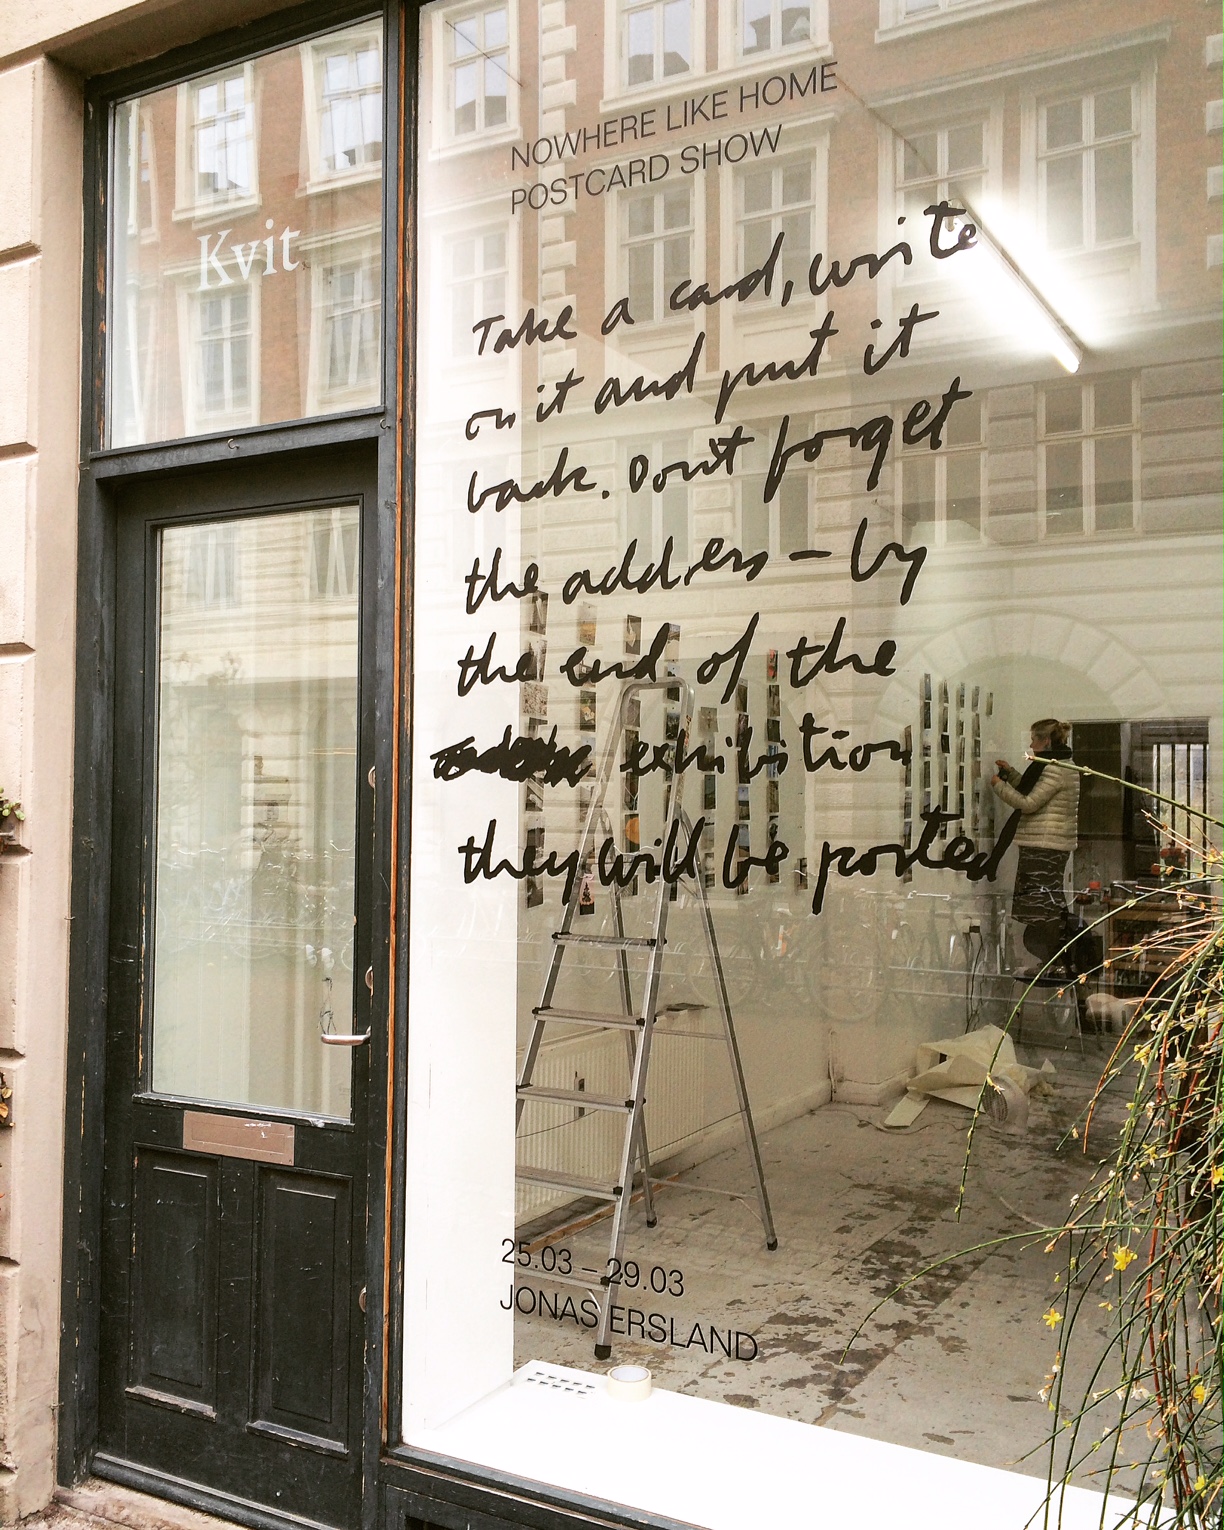 Kvit
NOWHERE LIKE HOME
POSTCARD SHOW
Take a card, write
on it and put it
back. Don't forget
the address – by
the end of the
exhibition
they will be posted
25.03 – 29.03
JONAS ERSLAND